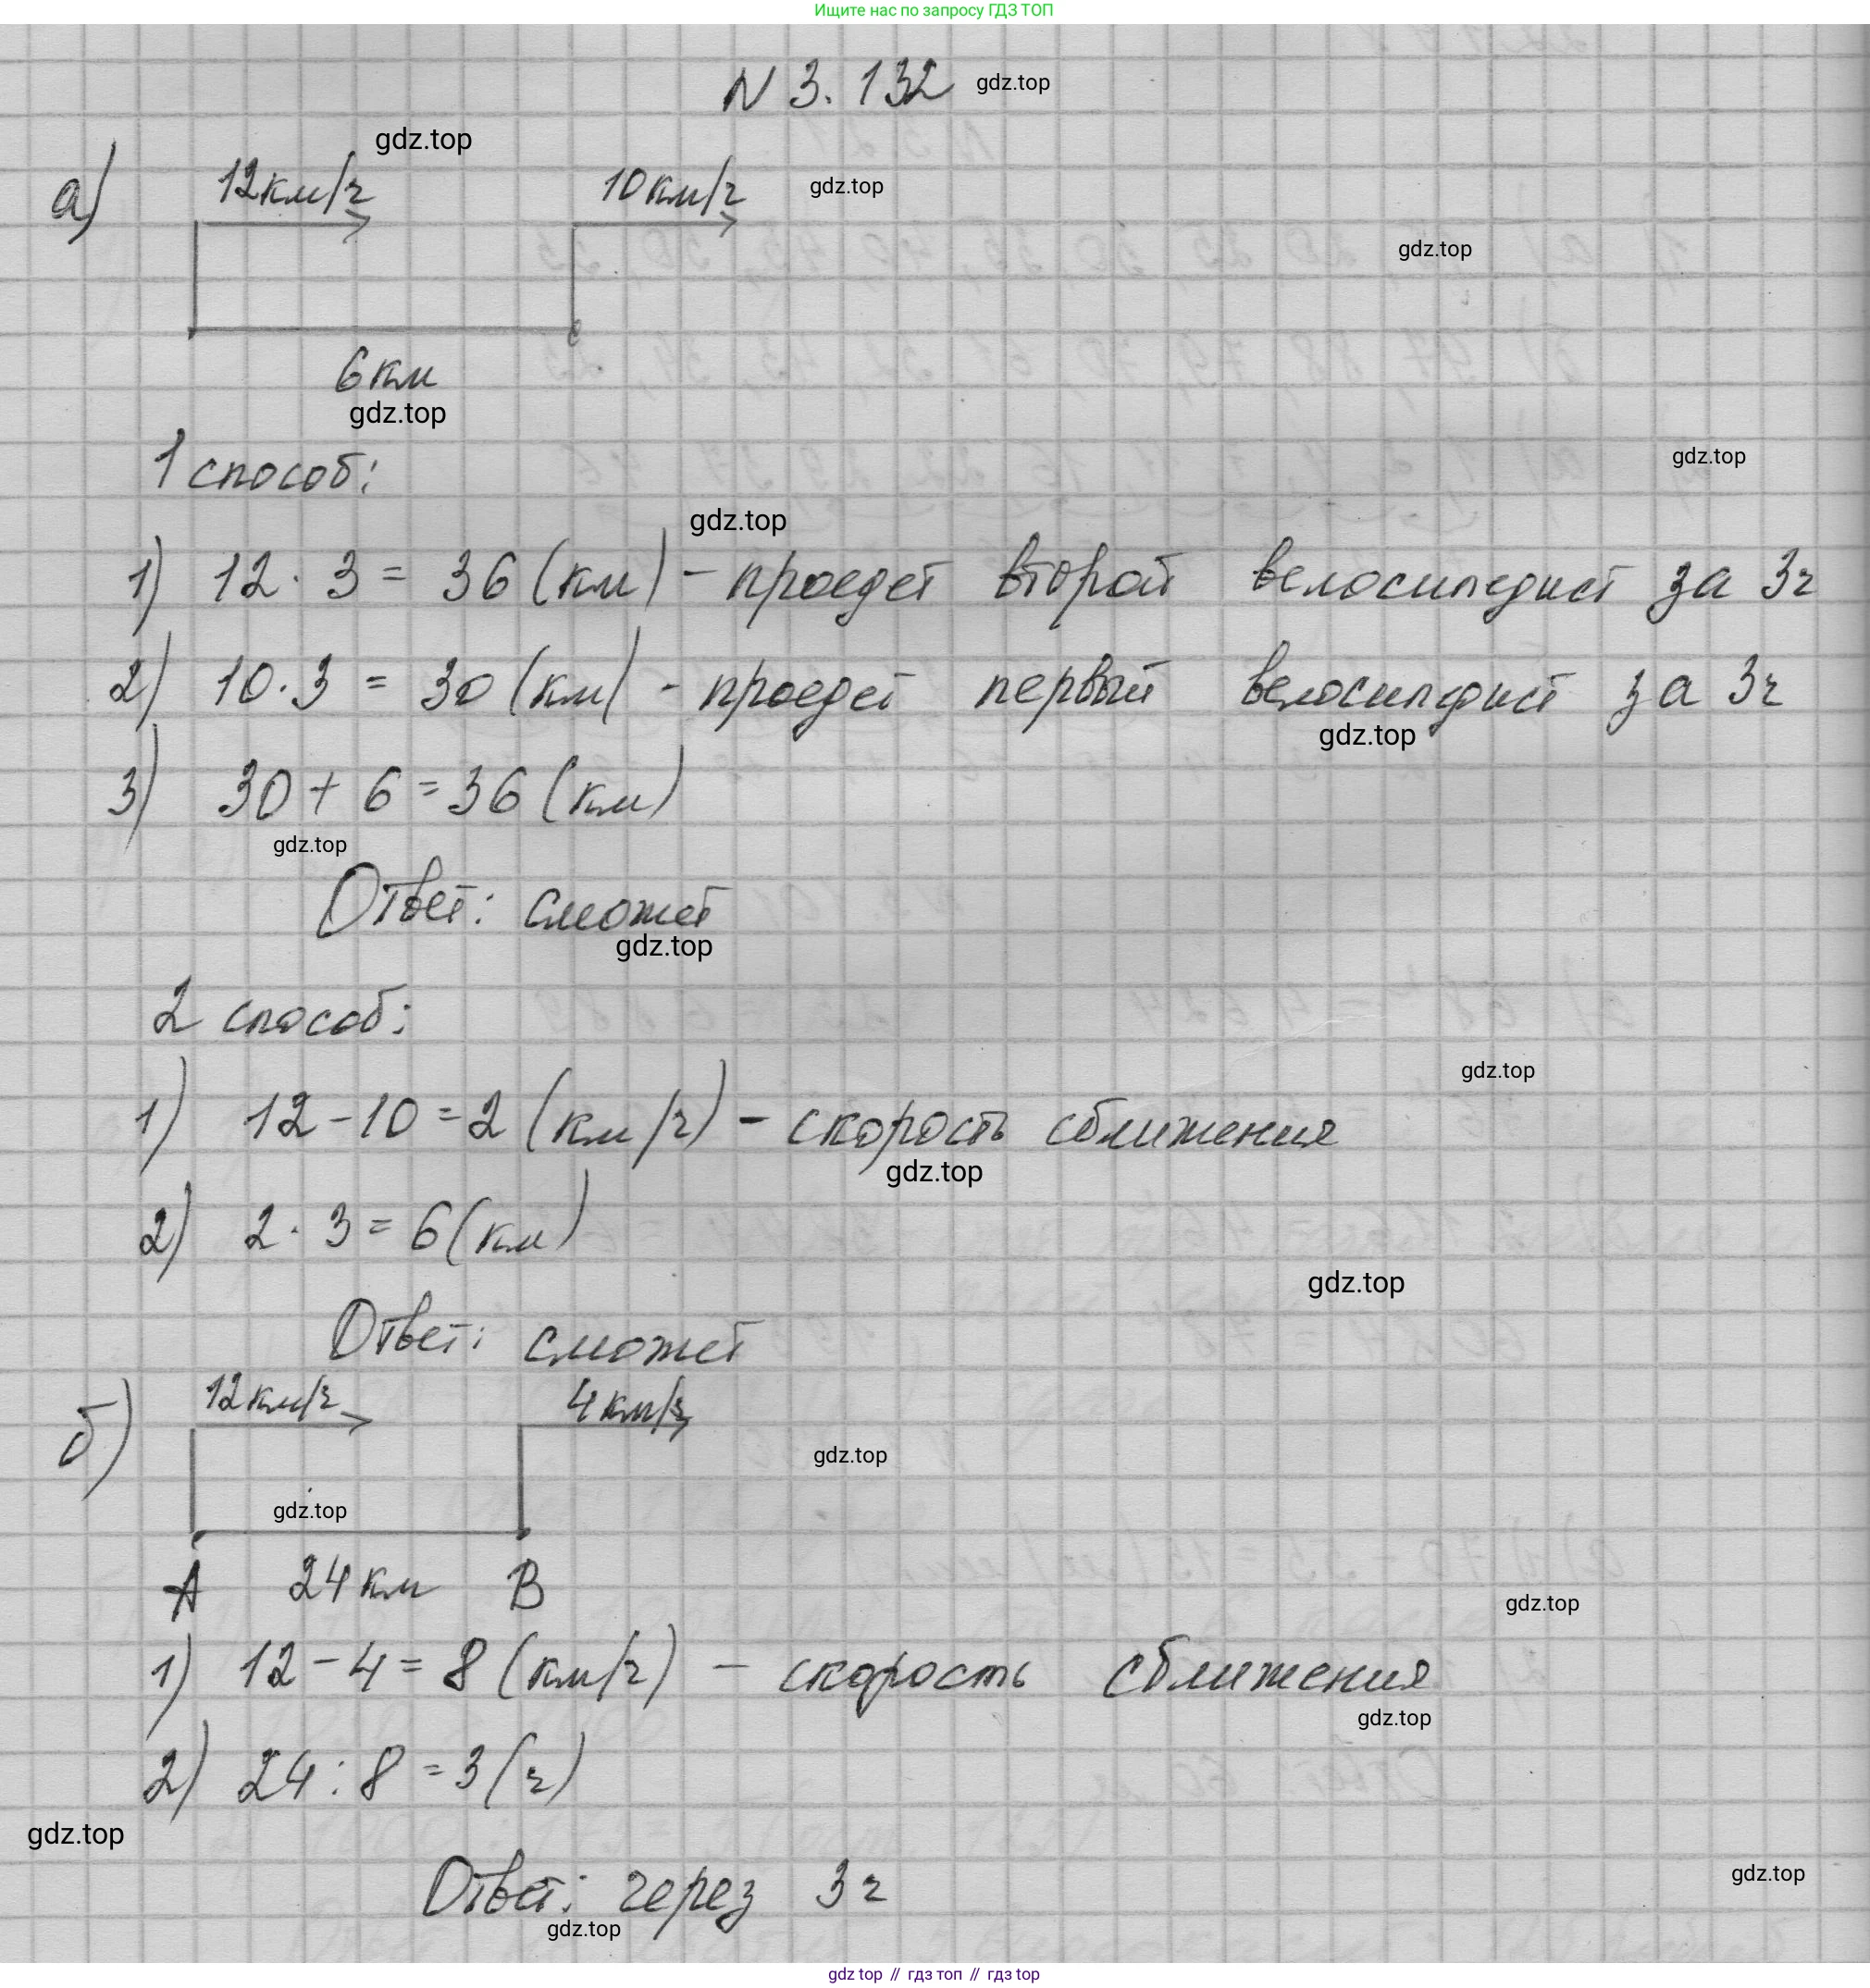 Ищите нас по запросу ГДЗ ТОП
N 3.132 gdz.top
gdz.top
а) 12км/ч 10км/ч gdz.top
gdz.top
6км
gdz.top
1 способ: gdz.top
gdz.top
1) 12 · 3 = 36 (км) - проедет второй велосипедист за 3ч
2) 10 · 3 = 30 (км) - проедет первый велосипедист за 3ч
gdz.top
3) 30 + 6 = 36 (км)
gdz.top
Ответ: сможет
gdz.top
2 способ:
gdz.top
1) 12 - 10 = 2 (км/ч) - скорость сближения
gdz.top
2) 2 · 3 = 6 (км)
gdz.top
Ответ: сможет
б) 12км/ч 4км/ч
gdz.top
gdz.top
А 24км В
gdz.top
1) 12 - 4 = 8 (км/ч) - скорость сближения
gdz.top
2) 24 : 8 = 3 (ч)
gdz.top
gdz.top
Ответ: через 3ч
gdz.top
gdz top // гдз топ // гдз top